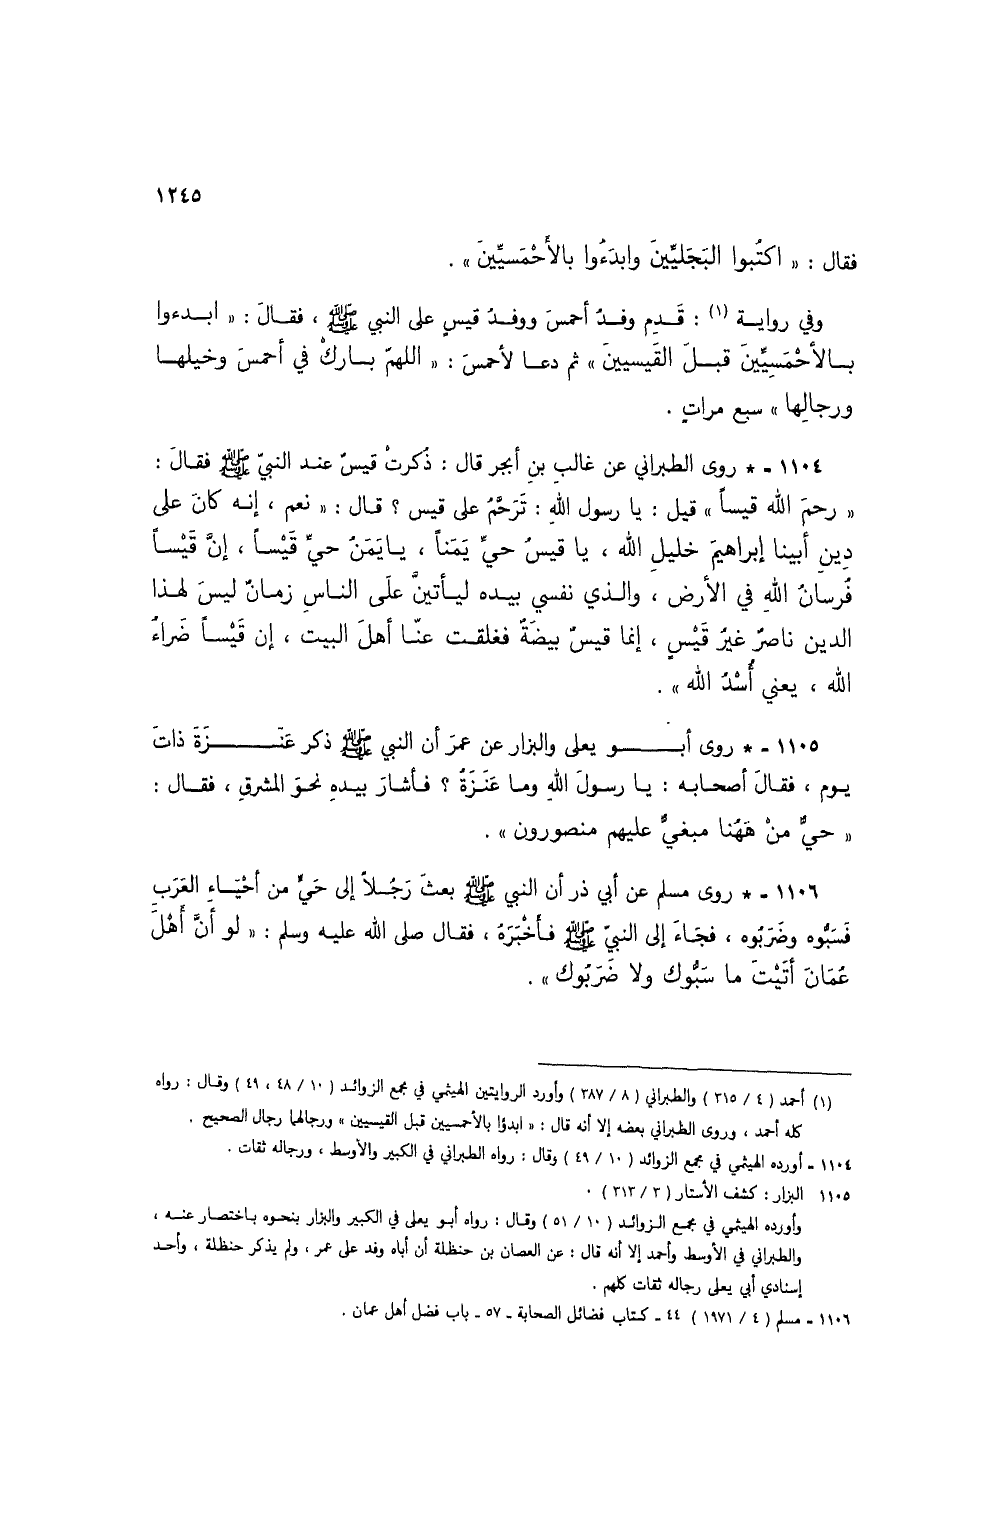 ١٢٤٥
فقال : « اكتُبوا البَجَليِّينَ وابدَءُوا بالأَحْمَسيِّينَ » .
وفي روايـة (١) : قَـدِم وفـدُ أحمسَ ووفـدُ قيسٍ على النبي ﷺ ، فقـالَ : « ابـدءوا
بـالأحْمَسِيِّينَ قبـلَ القَيسيينَ » ثم دعـا لأحمسَ : « اللهمّ بـاركْ في أحمسَ وخيلهـا
ورجالِها » سبع مراتٍ .
١١٠٤ - * روى الطبراني عن غالبِ بنِ أبجرِ قال : ذُكرتْ قيسٌ عنـد النبيّ ﷺ فقـالَ :
« رحمَ الله قيساً » قيل : يا رسول اللهِ : تَرَحَّمُ على قيس ؟ قـال : « نعم ، إنـه كانَ على
دينِ أبينا إبراهيمَ خليلِ الله ، يا قيسُ حيِّ يَمَناً ، يـايَمَنُ حيِّ قَيْسـاً ، إنَّ قَيْسـاً
فُرسانُ اللهِ في الأرض ، والـذي نفسي بيـده ليـأتينَّ علَى النـاسِ زمـانٌ ليسَ لهذا
الدين ناصرٌ غيرُ قَيْسٍ ، إنما قيسٌ بيضَةٌ فغلقـت عنّـا أهلَ البيت ، إن قَيْسـاً ضَراءُ
الله ، يعني أُسْدُ الله » .
١١٠٥ - * روى أبـــو يعلى والبزار عن عمرَ أن النبي ﷺ ذكر عَنَـــــزَةَ ذاتَ
يـوم ، فقـالَ أصحـابـه : يـا رسـولَ اللهِ ومـا عَنَـزَةُ ؟ فـأشـارَ بيـدهِ نحـوَ المشرقِ ، فقـال :
« حيٌّ منْ هَهُنا مبغيٌّ عليهم منصورون » .
١١٠٦ - * روى مسلم عن أبي ذر أن النبي ﷺ بعثَ رَجُـلاً إلى حَيٍّ من أحْيَـاءِ العَرَبِ
فَسَبُّوه وضَرَبُوه ، فجَـاءَ إلى النبيّ ﷺ فـأخْبَرَهُ ، فقـال صلى الله عليـه وسلم : « لو أنَّ أَهْلَ
عُمَانَ أتَيْتَ ما سَبُّوك ولا ضَرَبُوك » .
(١) أحمد ( ٤ / ٣١٥ ) والطبراني ( ٨ / ٣٨٧ ) وأورد الروايتين الهيثمي في مجمع الزوائـد ( ١٠ / ٤٨ ، ٤٩ ) وقـال : رواه
كله أحمد ، وروى الطبراني بعضه إلا أنه قال : « ابدؤا بالأحمسيين قبل القيسيين » ورجالهما رجال الصحيح .
١١٠٤ - أورده الهيثمي في مجمع الزوائد ( ١٠ / ٤٩ ) وقال : رواه الطبراني في الكبير والأوسط ، ورجاله ثقات .
١١٠٥ البزار : كشف الأستار ( ٣ / ٣١٣ ) .
وأورده الهيثمي في مجمـع الـزوائـد ( ١٠ / ٥١ ) وقـال : رواه أبـو يعلى في الكبير والبزار بنحـوه بـاختصـار عنـه ،
والطبراني في الأوسط وأحمد إلا أنه قال : عن العصان بن حنظلة أن أباه وفد على عمر ، ولم يذكر حنظلة ، وأحـد
إسنادي أبي يعلى رجاله ثقات كلهم .
١١٠٦ - مسلم ( ٤ / ١٩٧١ ) ٤٤ - كتاب فضائل الصحابة - ٥٧ - باب فضل أهل عمان .